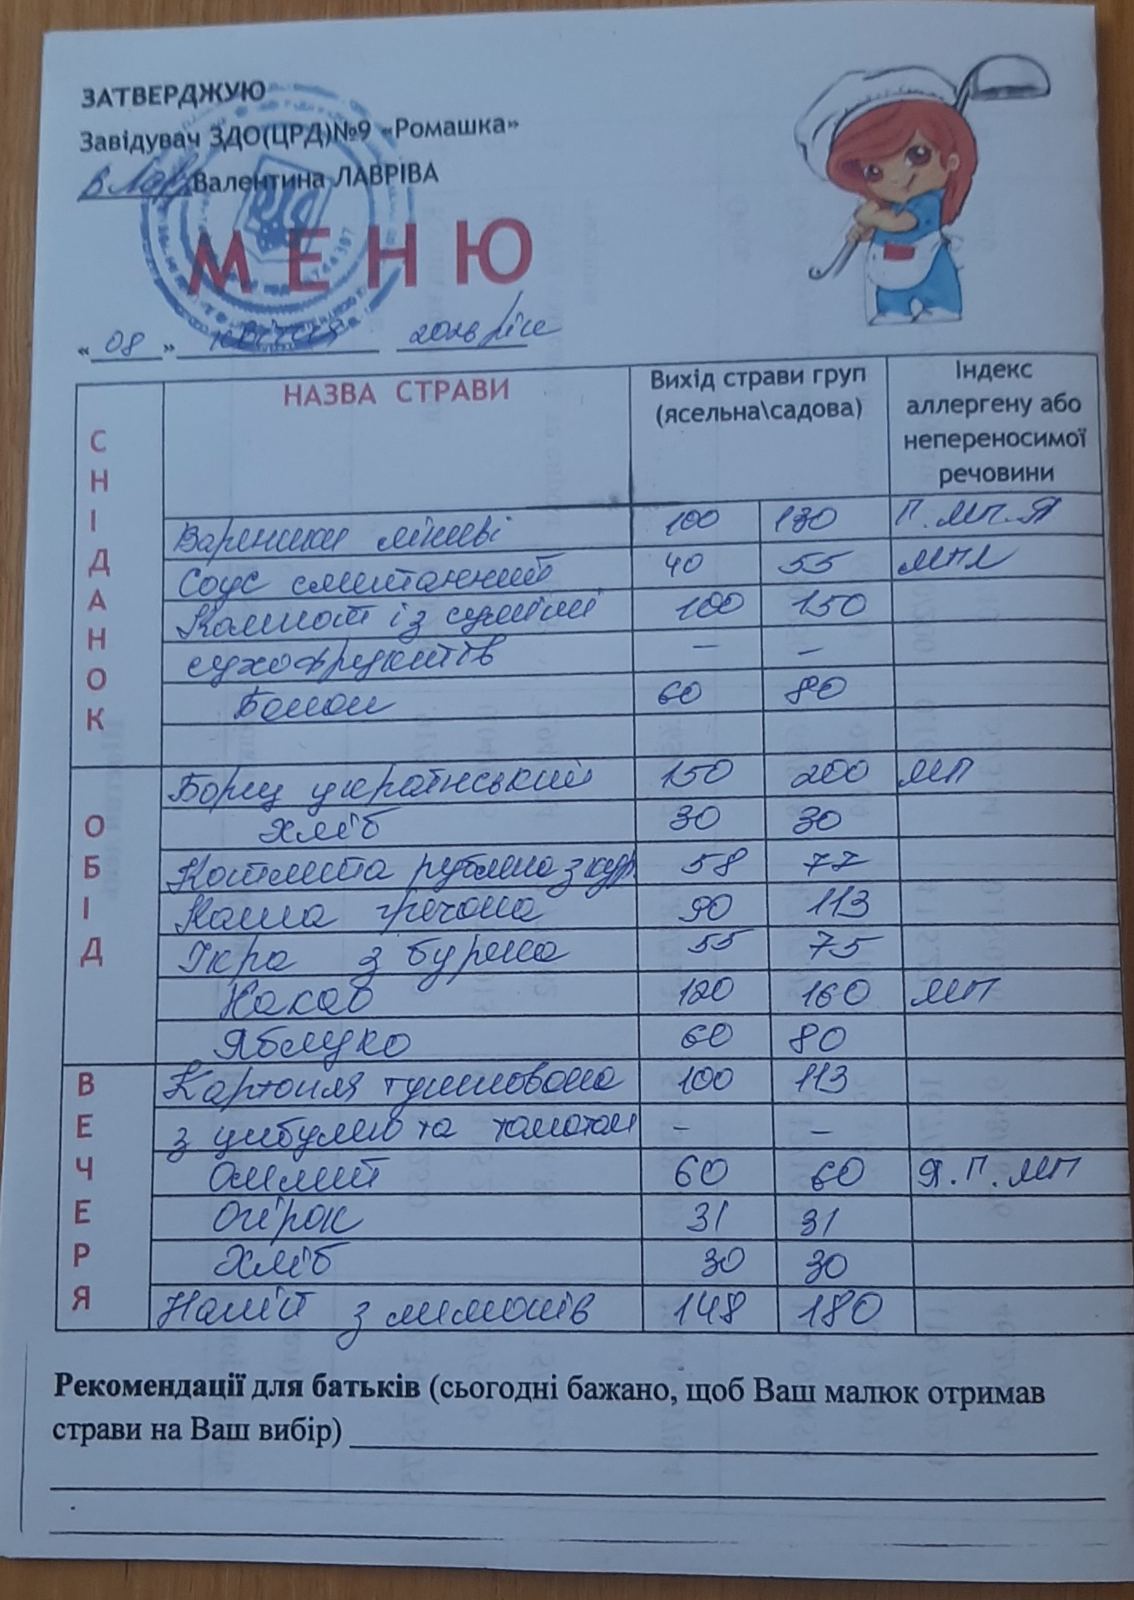 ЗАТВЕРДЖУЮ
Завідувач ЗДО(ЦРД)№9 «Ромашка»
Валентина ЛАВРІВА
МЕНЮ
« 08 » квітня 2026 року
НАЗВА СТРАВИ Вихід страви груп (ясельна\садова) Індекс аллергену або непереносимої речовини
СНІДАНОК
Вареники ліниві 100 130 П. МП. Я
Соус сметанний 40 55
Компот із суміші 100 150
сухофруктів – –
Банан 60 80
ОБІД
Борщ український 150 200 МП
Хліб 30 30
Котлета рублена з кур 58 77
Каша гречана 90 113
Ікра з буряка 55 75
Какао 120 160 МП
Яблуко 60 80
ВЕЧЕРЯ
Картопля тушкована 100 113
з цибулею та томатом – –
Омлет 60 60 Я. П. МП
Огірок 31 31
Хліб 30 30
Напій з лимонів 148 180
Рекомендації для батьків (сьогодні бажано, щоб Ваш малюк отримав
страви на Ваш вибір)